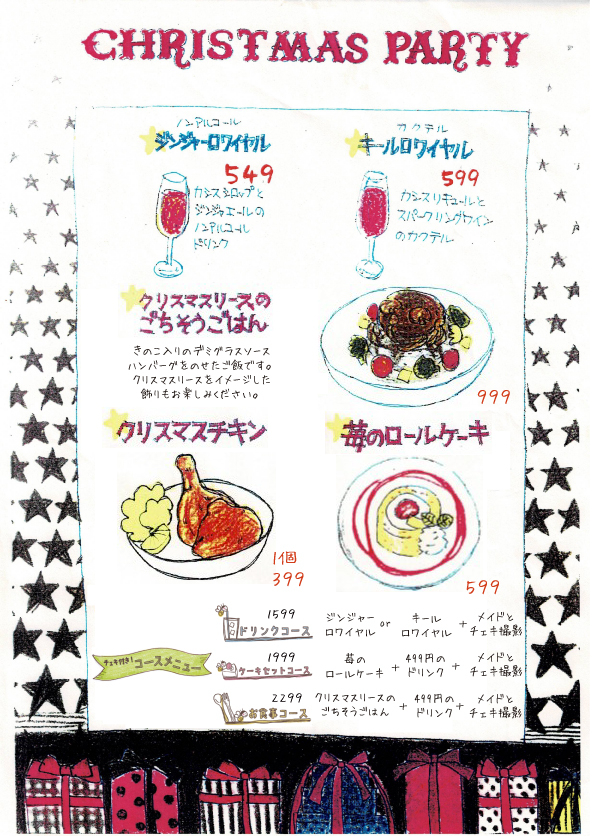 CHRISTMAS PARTY
ノンアルコール
ジンジャーロワイヤル
549
カシスシロップと
ジンジャエールの
ノンアルコール
ドリンク
カクテル
キールロワイヤル
599
カシスリキュールと
スパークリングワイン
のカクテル
クリスマスリースの
ごちそうごはん
きのこ入りのデミグラスソース
ハンバーグをのせたご飯です。
クリスマスリースをイメージした
飾りもお楽しみください。
999
クリスマスチキン
1個
399
苺のロールケーキ
599
チェキ付き!コースメニュー
1599
ドリンクコース
ジンジャー
ロワイヤル
or
キール
ロワイヤル
+
メイドと
チェキ撮影
1999
ケーキセットコース
苺の
ロールケーキ
+
499円の
ドリンク
+
メイドと
チェキ撮影
2299
お食事コース
クリスマスリースの
ごちそうごはん
+
499円の
ドリンク
+
メイドと
チェキ撮影